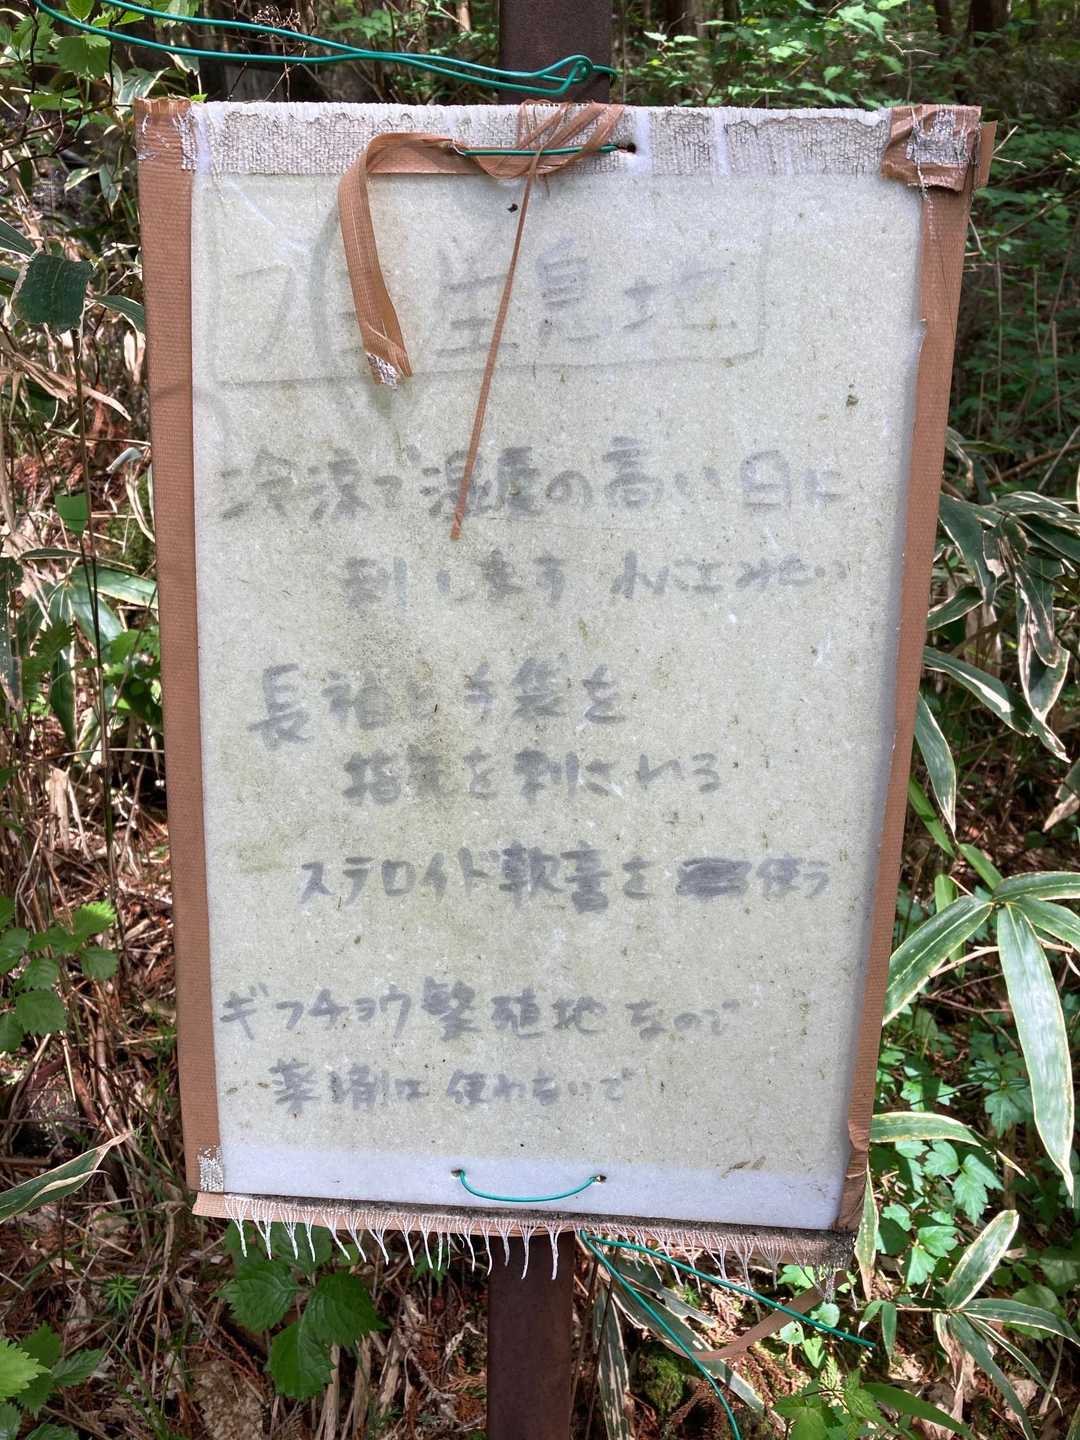 生息地
冷涼で湿度の高い日に
刺します 小バエみたい
長袖と手袋を
指先を刺される
ステロイド軟膏を 使う
ギフチョウ繁殖地なので
薬剤は使わないで